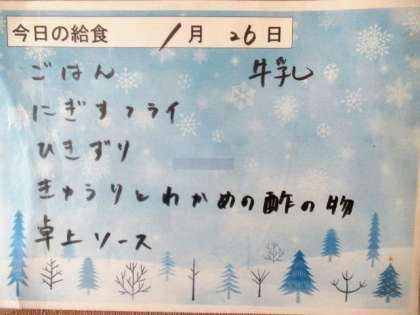 今日の給食 1月26日
ごはん 牛乳
にぎすフライ
ひきずり
きゅうりとわかめの酢の物
卓上ソース